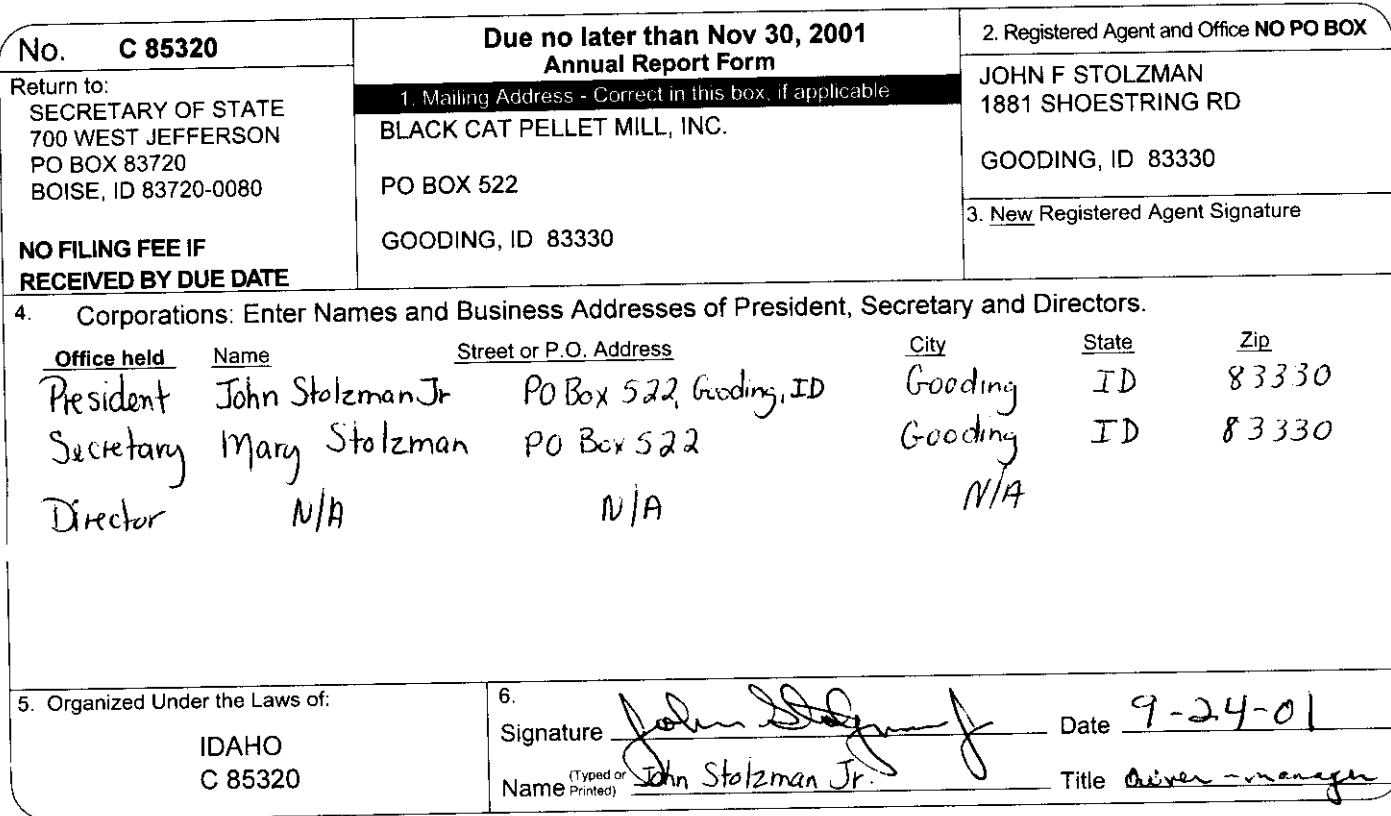 No. C 85320
Return to:
SECRETARY OF STATE
700 WEST JEFFERSON
PO BOX 83720
BOISE, ID 83720-0080
NO FILING FEE IF
RECEIVED BY DUE DATE
Due no later than Nov 30, 2001
Annual Report Form
1. Mailing Address - Correct in this box, if applicable
BLACK CAT PELLET MILL, INC.
PO BOX 522
GOODING, ID 83330
2. Registered Agent and Office NO PO BOX
JOHN F STOLZMAN
1881 SHOESTRING RD
GOODING, ID 83330
3. New Registered Agent Signature
4. Corporations: Enter Names and Business Addresses of President, Secretary and Directors.
Office held Name Street or P.O. Address City State Zip
President John Stolzman Jr PO Box 522, Gooding, ID Gooding ID 83330
Secretary Mary Stolzman PO Box 522 Gooding ID 83330
Director N/A N/A N/A
5. Organized Under the Laws of:
IDAHO
C 85320
6.
Signature John Stolzman Jr Date 9-24-01
Name (Typed or Printed) John Stolzman Jr. Title -manager